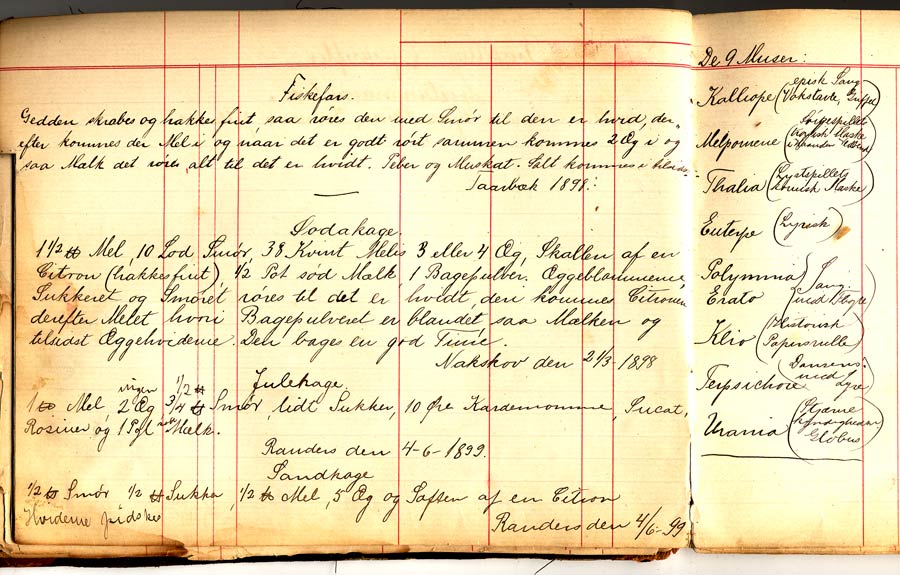 Fiskefars.
Gedden skrabes og hakkes fint, saa røres den med Smør til den er hvid, der=
efter kommes der Mel i og naar det er godt rørt sammen kommes 2 Æg i og
saa Mælk det røres alt til det er hvidt. Peber og Muskat. Salt kommes i tilsidst
Taarbæk 1898.
Sodakage
1 1/2 ℔ Mel, 10 Lod Smør, 38 Kvint Melis 3 eller 4 Æg, Skallen af en
Citron (hakkes fint), 1/2 Pot sød Mælk, 1 Bagepulver. Æggeblommerne,
Sukkeret og Smøret røres til det er hvidt, den kommes Citronen
derefter Melet hvori Bagepulveret er blandet saa Mælken og
tilsidst Æggehviderne. Den bages en god Time.
Nakskov den 21/3 1898
Julekage.
ingen 1/2 ℔
1 ℔ Mel, 2 Æg 3/4 ℔ Smør, lidt Sukker, 10 Øre Kardemomme, Sucat,
Rosiner og 1 Pgl Mælk.
Randers den 4-6-1899.
Sandkage
1/2 ℔ Smør 1/2 ℔ Sukker, 1/2 ℔ Mel, 5 Æg og Saften af en Citron
Hviderne pidskes
Randers den 4/6-99
De 9 Muser:
Kalliope (episk Sang
Vokstavle, Griffel)
Melpomene (Sørgespillet
tragisk Maske)
Thalia (Lystspillets
komisk Maske)
Euterpe (Lyrisk)
Polymnia
Erato
Sang
med
Klio (Historisk
Papersrulle)
Terpsichore (Dansens
med Lyre)
Urania (Stjerne
kyndigheden
Globus)